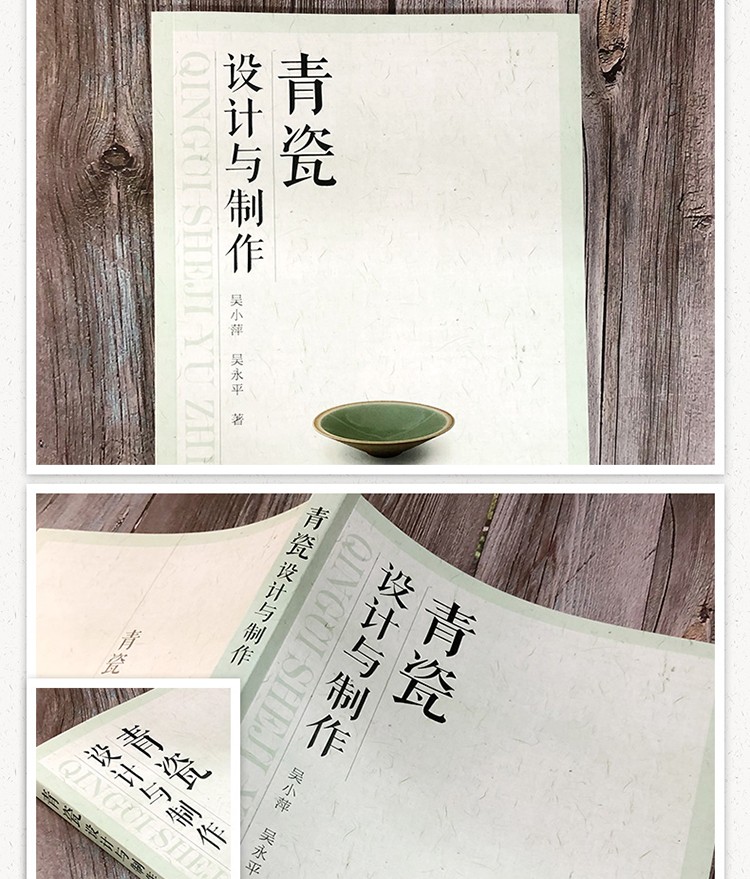 青瓷
设计与制作
QINGCI SHEJI YU ZHI
吴小萍 吴永平 著
青瓷
青瓷设计与制作
青瓷
设计与制作
QINGCI SHEJI Y
吴小萍 吴永平
青瓷
设计与制作
QINGCI SHEJ
青瓷设计与制作